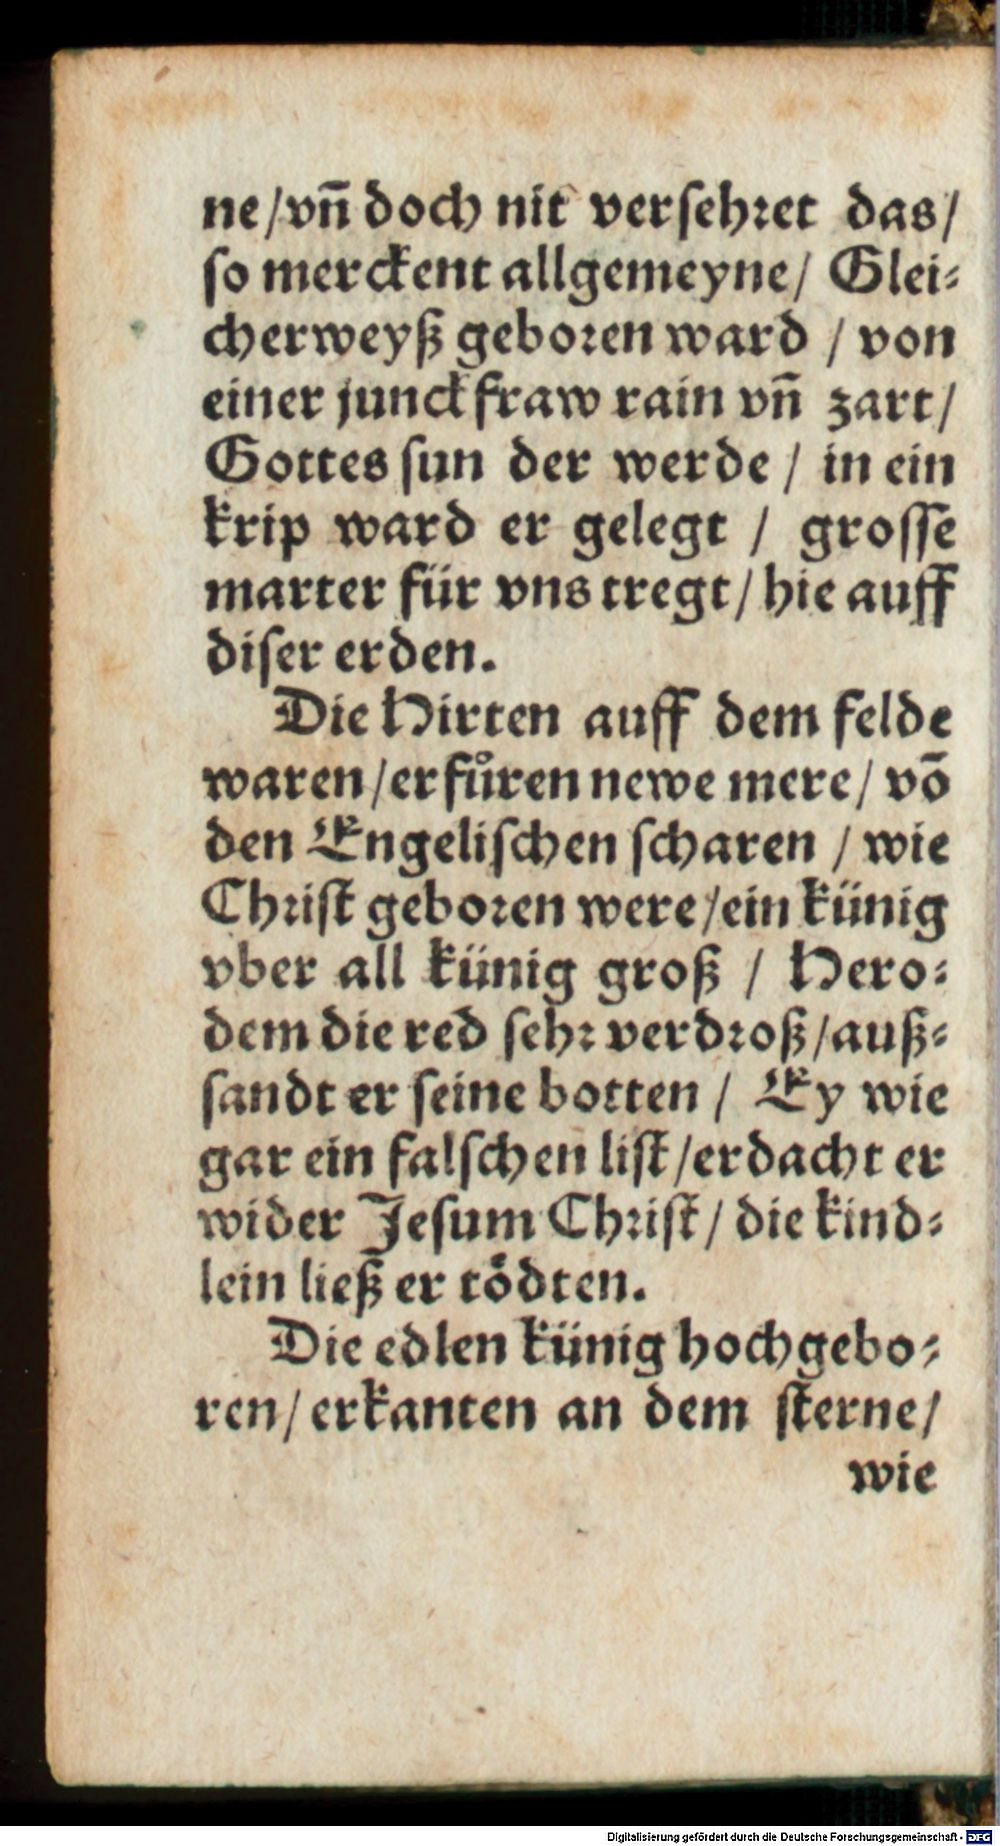 ne/vñ doch nit verſehret das/
ſo merckent allgemeyne/ Glei⸗
cherweyß geboren ward / von
einer junckfraw rain vñ zart/
Gottes ſun der werde / in ein
krip ward er gelegt / groſſe
marter für vns tregt/ hie auff
diſer erden.
Die Hirten auff dem felde
waren/erfůren newe mere/ vō
den Engeliſchen ſcharen / wie
Chriſt geboren were/ein künig
vber all künig groß / Hero⸗
dem die red ſehr verdroß/auß⸗
ſandt er ſeine botten / Ey wie
gar ein falſchen liſt/erdacht er
wider Jeſum Chriſt/ die kind⸗
lein ließ er toͤdten.
Die edlen künig hochgebo⸗
ren/ erkanten an dem ſterne/
wie
Digitalisierung gefördert durch die Deutsche Forschungsgemeinschaft - DFG